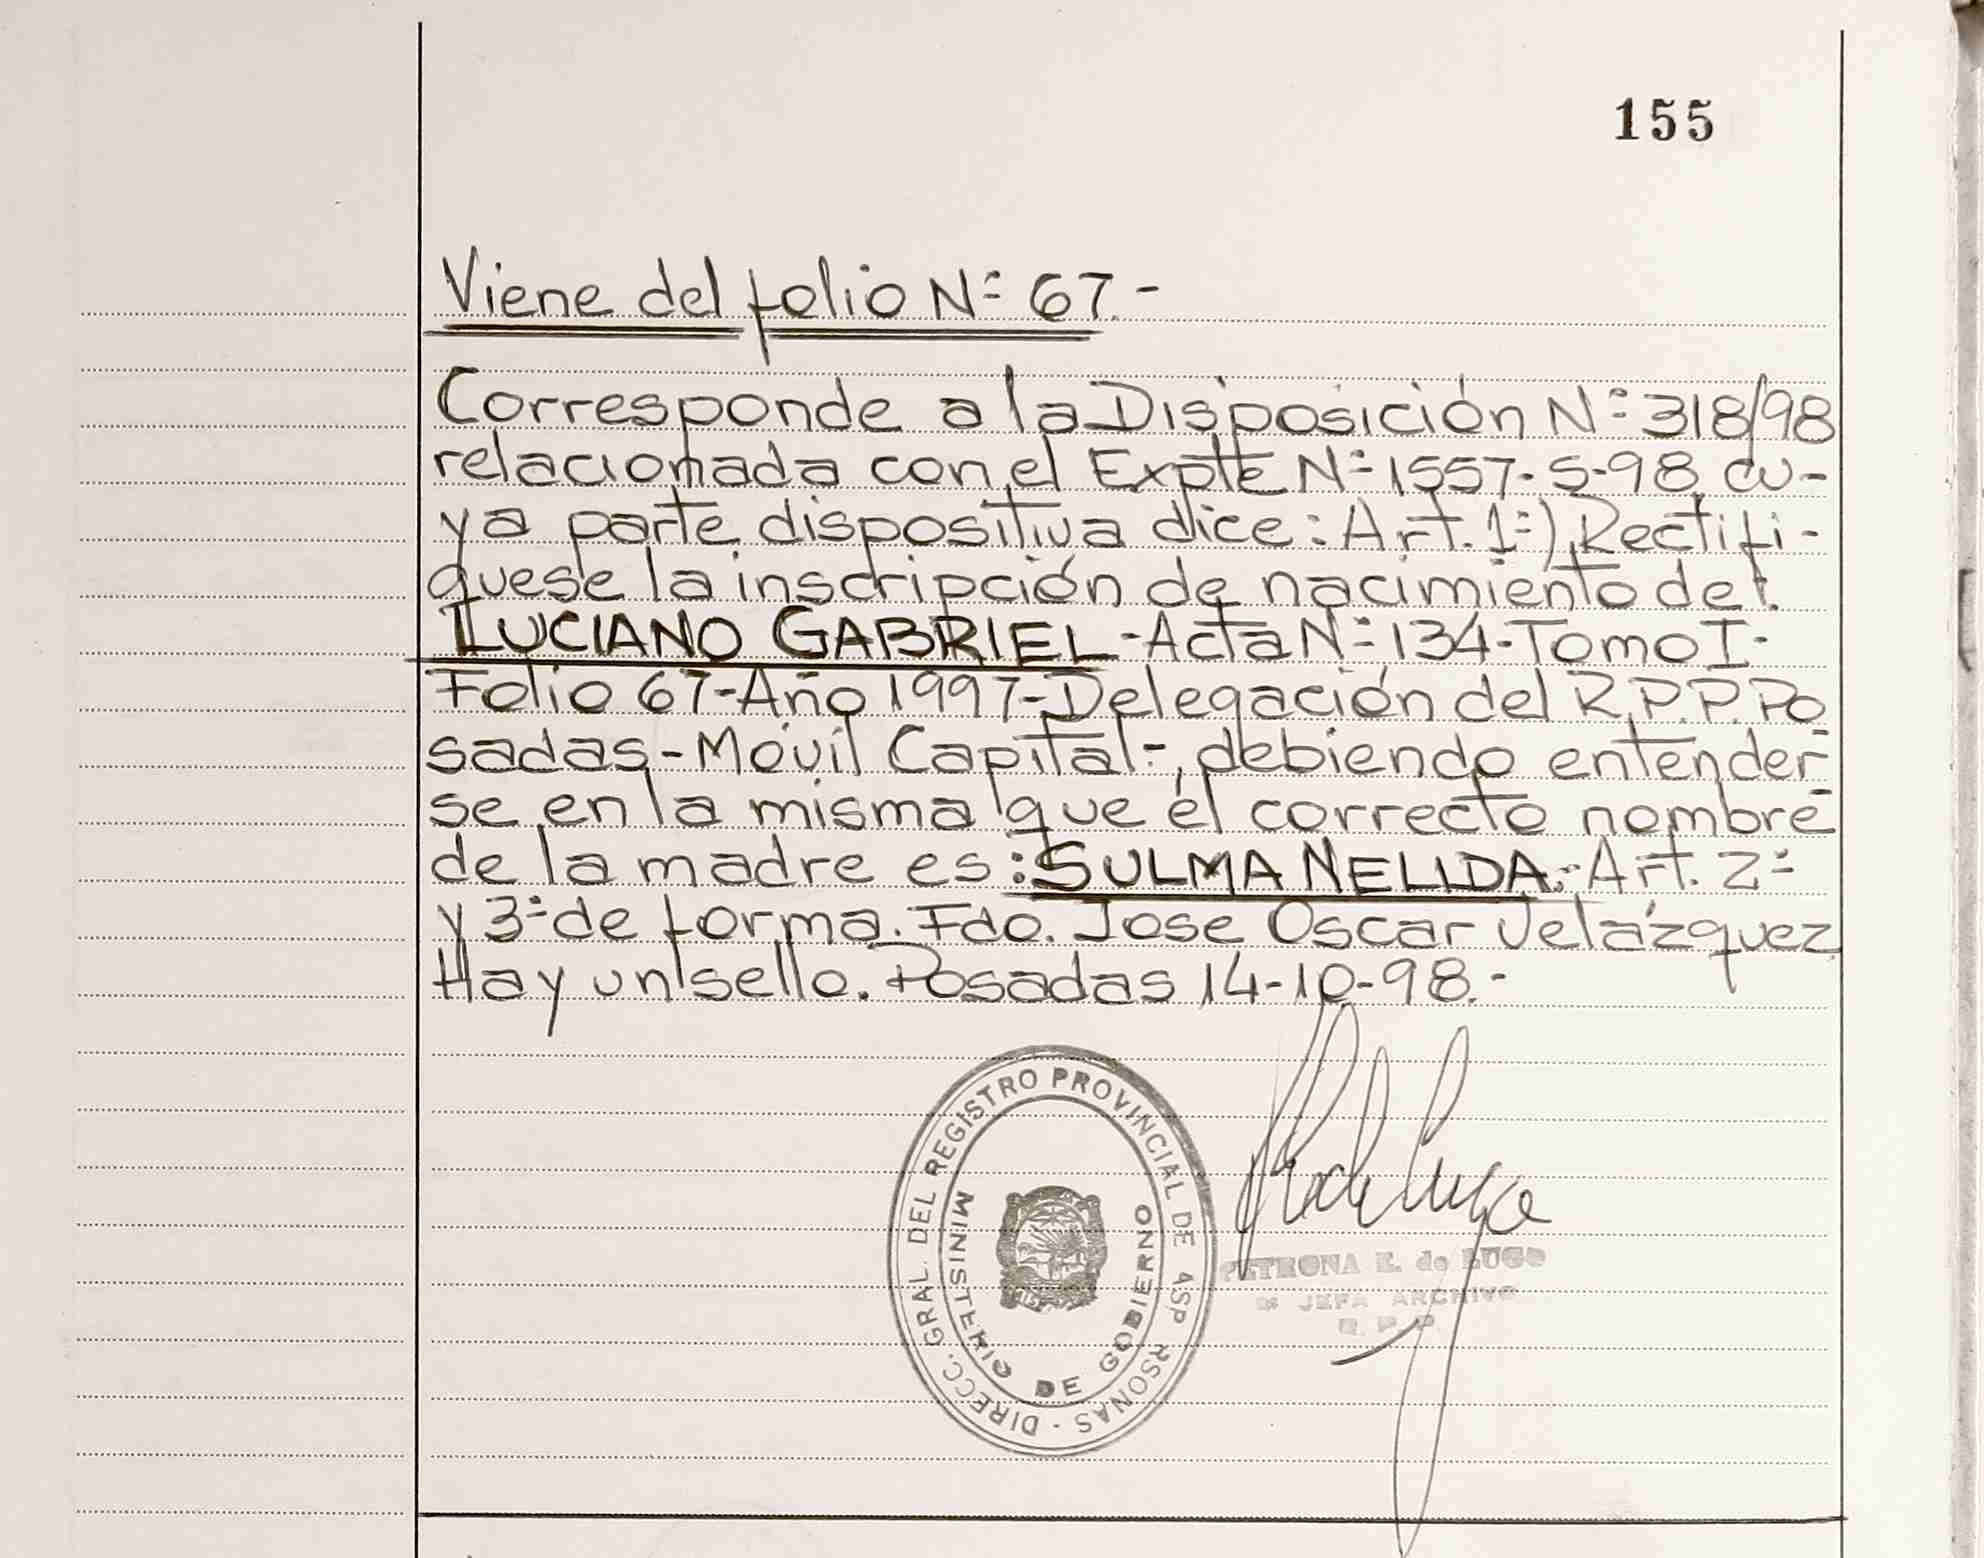 155
Viene del folio Nº 67.-
Corresponde a la Disposición Nº 318/98
relacionada con el Expte Nº 1557-S-98 cu-
ya parte dispositiva dice: Art. 1º) Rectifí-
quese la inscripción de nacimiento de:
LUCIANO GABRIEL-Acta Nº 134-Tomo I-
Folio 67-Año 1997-Delegación del R.P.P. Po
sadas-Móvil Capital-, debiendo entender-
se en la misma que el correcto nombre
de la madre es: SULMA NELIDA.-Art. 2º
y 3º de forma. Fdo. Jose Oscar Velázquez
Hay un sello. Posadas 14-10-98.-
DIRECC. GRAL. DEL REGISTRO PROVINCIAL DE ASP RSONAS -
MINISTERIO DE GOBIERNO
PETRONA E. de LUGO
JEFA ARCHIVO
R. P. P.